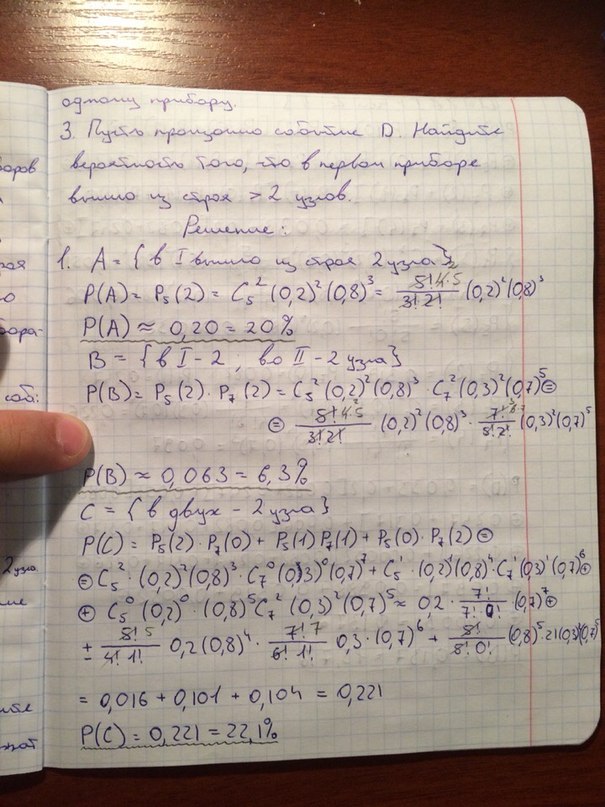 одному прибору.
3. Пусть произошло событие D. Найдите
вероятность того, что в первом приборе
вышло из строя > 2 узлов.
Решение:
1. A = { в I вышло из строя 2 узла}
P(A) = P₅(2) = C₅² (0,2)² (0,8)³ = 5! 4·5 2 / 3! 2! (0,2)² (0,8)³
P(A) ≈ 0,20 = 20%
B = { в I - 2 ; во II - 2 узла}
P(B) = P₅(2) · P₇(2) = C₅² (0,2)² (0,8)³ · C₇² (0,3)² (0,7)⁵ =
= 5! 4·5 2 / 3! 2! (0,2)² (0,8)³ · 7! 3 6·7 / 5! 2! (0,3)² (0,7)⁵
P(B) ≈ 0,063 = 6,3%
C = { в двух - 2 узла}
P(C) = P₅(2) · P₇(0) + P₅(1) P₇(1) + P₅(0) · P₇(2) =
= C₅² · (0,2)² (0,8)³ · C₇⁰ (0,3)⁰ (0,7)⁷ + C₅¹ · (0,2)¹ (0,8)⁴ C₇¹ (0,3)¹ (0,7)⁶ +
+ C₅⁰ (0,2)⁰ · (0,8)⁵ C₇² (0,3)² (0,7)⁵ ≈ 0,2 · 7! / 7! · 0! (0,7)⁷ +
+ 5! 5 / 4! 1! 0,2 (0,8)⁴ · 7! 7 / 6! 1! 0,3 · (0,7)⁶ + 5! / 5! 0! (0,8)⁵ · 21 (0,3)² (0,7)⁵
= 0,016 + 0,101 + 0,104 = 0,221
P(C) = 0,221 = 22,1%